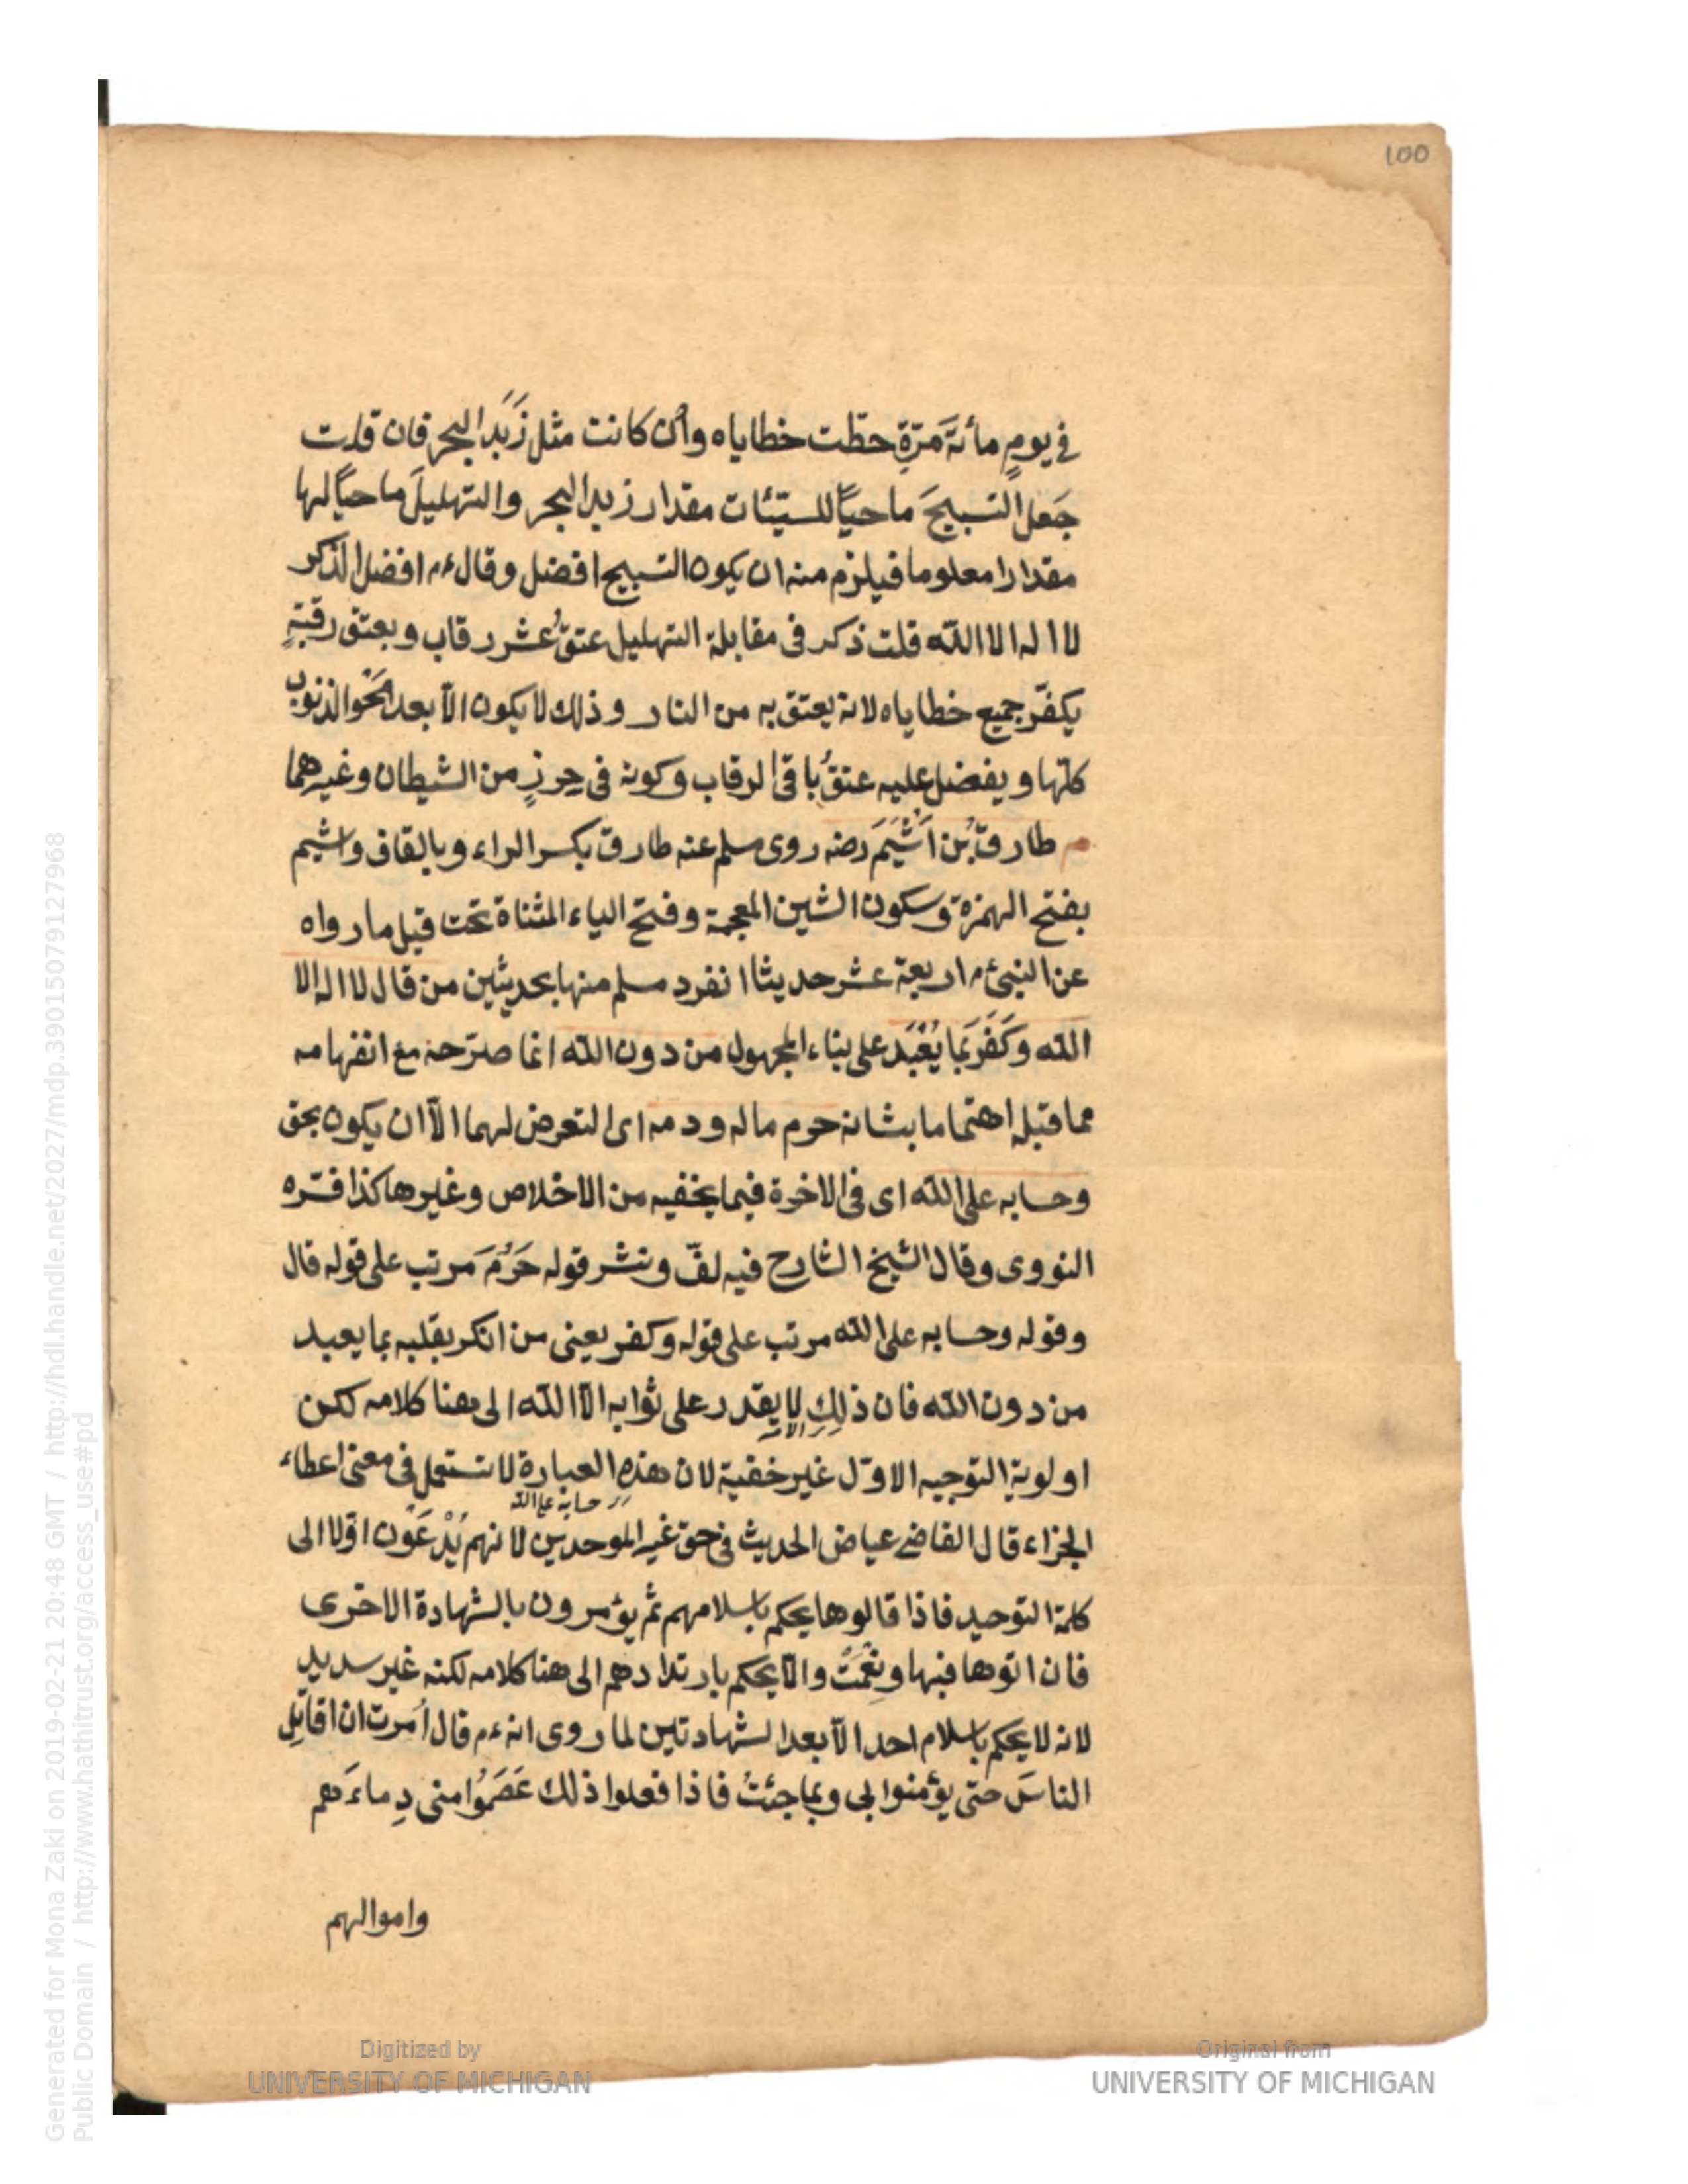 100
في يومٍ مأئةَ مَرّةٍ حطّت خطاياه وأن كانت مثل زَبَد البحر فان قلت
جَعل التسبيحَ ماحيًا للسيّئات مقدار زبد البحر والتهليلَ ماحيًا لها
مقدارا معلوما فيلزم منه ان يكون التسبيح افضل وقال ءم افضل الذكر
لا اله الا الله قلت ذكر في مقابلة التهليل عتقُ عشر رقاب وبعتق رقبةٍ
يكفّر جميع خطاياه لانه يعتق به من النار وذلك لا يكون الّا بعد محو الذنوب
كلّها ويفضل عليه عتقُ باقي الرقاب وكونه في حِرزٍ من الشيطان وغيرهما
م طارق بْن اَشْيَمَ رضه روى مسلم عنه طارق بكسر الراء وبالقاف واشيم
بفتح الهمزة وسكون الشين المعجمة وفتح الياء المثناة تحت قيل ما رواه
عن النبي ءم اربعة عشر حديثا انفرد مسلم منها بحديثين من قال لا اله الا
الله وكَفَرَ بمَا يُعْبَد على بناء المجهول من دون الله انما صرّح به مع انفهامه
مما قبله اهتماما بشانه حرم ماله ودمه اى التعرض لهما الّا ان يكون بحق
وحسابه على الله اى في الاخرة فيما يخفيه من الاخلاص وغيرها كذا فسّره
النووى وقال الشيخ الشارح فيه لفّ ونشر قوله حَرُمَ مرتب على قوله قال
وقوله وحسابه على الله مرتب على قوله وكفر يعنى من انكر بقلبه بما يعبد
من دون الله فان ذلك لا يقدر على ثوابه الّا الله الى هنا كلامه لكن
اولوية التوجيه الاوّل غير خفية لان هذه العبارة لا تستعمل في معنى اعطاء
حسابه على الله
الجزاء قال القاضي عياض الحديث في حق غير الموحدين لانهم يُدْعَوْن اوّلا الى
كلمة التوحيد فاذا قالوها يحكم باسلامهم ثم يؤمرون بالشهادة الاخرى
فان اتوها فبها ونِعْمَتْ والّا يحكم بارتدادهم الى هنا كلامه لكنه غير سديد
لانه لا يحكم باسلام احد الّا بعد الشهادتين لما روى انه ءم قال اُمرت ان اقاتِل
الناسَ حتى يؤمنوا بي وبما جئتُ فاذا فعلوا ذلك عَصَمُوا منى دِماءَهم
واموالهم
Digitized by
UNIVERSITY OF MICHIGAN
Original from
UNIVERSITY OF MICHIGAN
Generated for Mona Zaki on 2019-02-21 20:48 GMT / http://hdl.handle.net/2027/mdp.39015079127968
Public Domain / http://www.hathitrust.org/access_use#pd